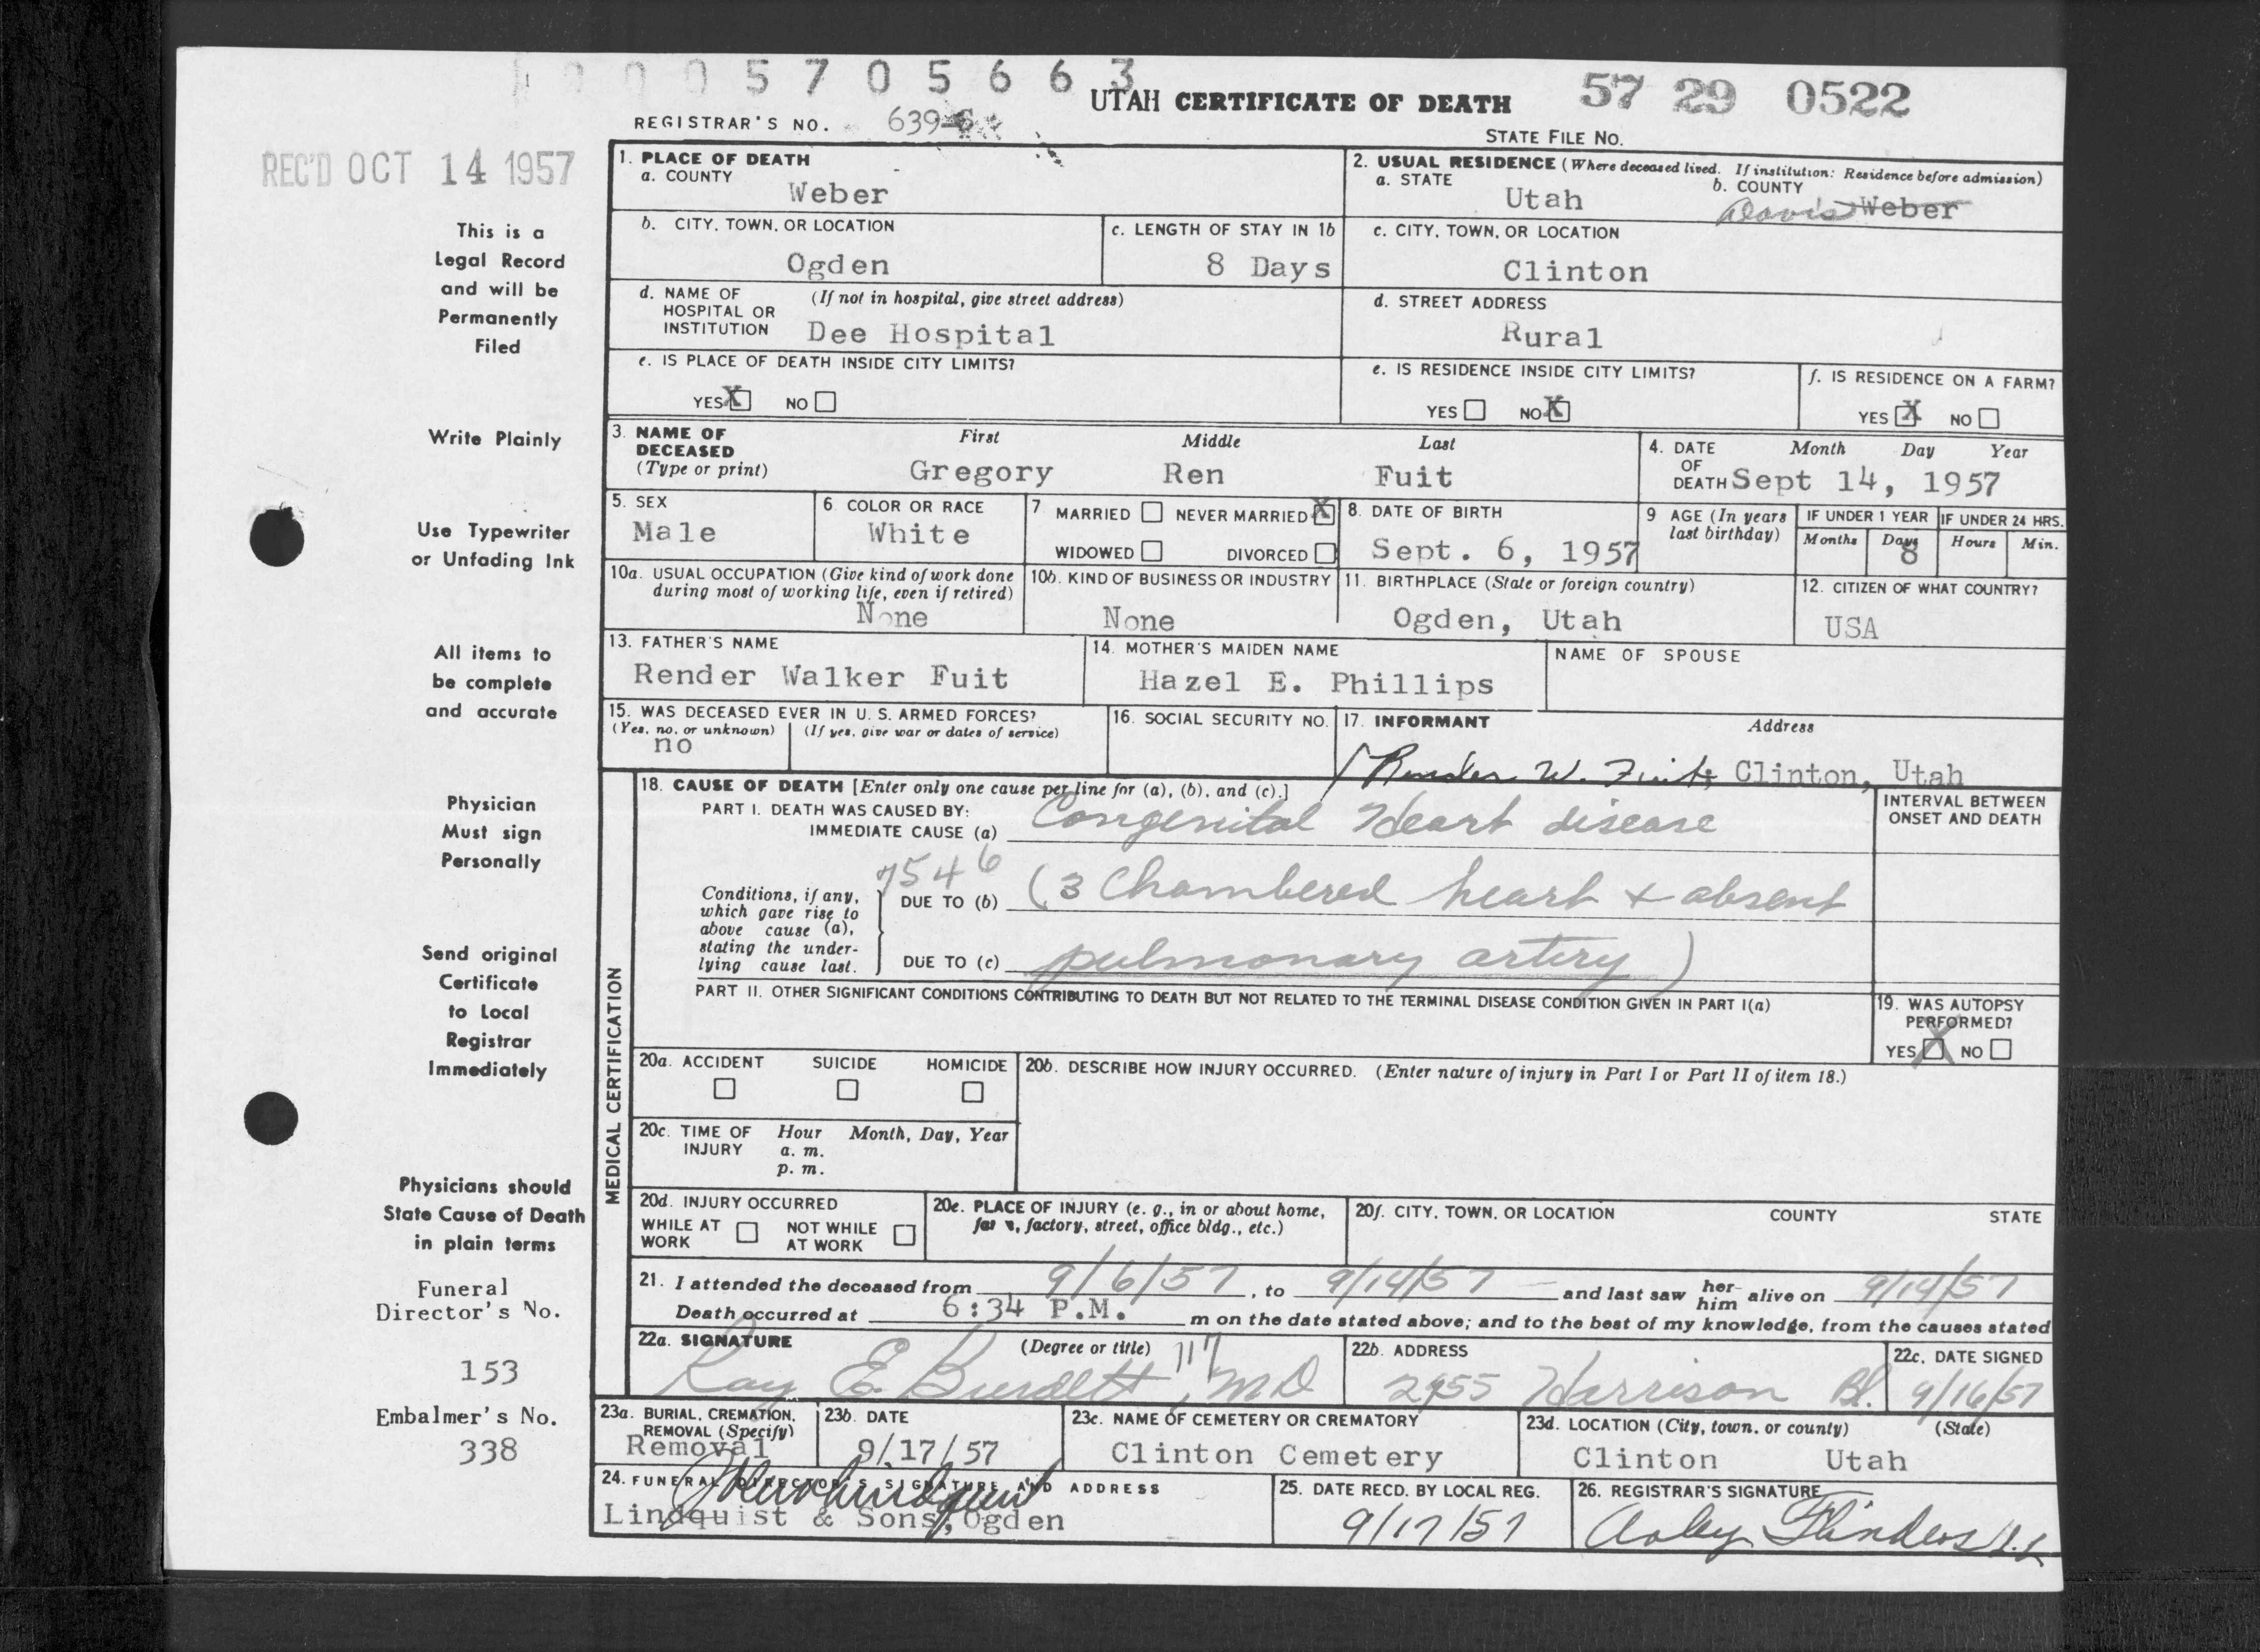 0 0 0 5 7 0 5 6 6 3
UTAH CERTIFICATE OF DEATH
57 29 0522
REGISTRAR'S NO. 639
STATE FILE NO.
REC'D OCT 14 1957
1. PLACE OF DEATH
a. COUNTY
Weber
2. USUAL RESIDENCE (Where deceased lived. If institution: Residence before admission)
a. STATE
Utah
b. COUNTY
Davis Weber
b. CITY, TOWN, OR LOCATION
Ogden
c. LENGTH OF STAY IN 1b
8 Days
c. CITY, TOWN, OR LOCATION
Clinton
d. NAME OF HOSPITAL OR INSTITUTION
(If not in hospital, give street address)
Dee Hospital
d. STREET ADDRESS
Rural
e. IS PLACE OF DEATH INSIDE CITY LIMITS?
YES X NO
e. IS RESIDENCE INSIDE CITY LIMITS?
YES NO X
f. IS RESIDENCE ON A FARM?
YES X NO
3. NAME OF DECEASED
(Type or print)
First Middle Last
Gregory Ren Fuit
4. DATE OF DEATH
Month Day Year
Sept 14, 1957
5. SEX
Male
6. COLOR OR RACE
White
7. MARRIED NEVER MARRIED X
WIDOWED DIVORCED
8. DATE OF BIRTH
Sept. 6, 1957
9. AGE (In years last birthday)
IF UNDER 1 YEAR
Months Days
8
IF UNDER 24 HRS.
Hours Min.
10a. USUAL OCCUPATION (Give kind of work done during most of working life, even if retired)
None
10b. KIND OF BUSINESS OR INDUSTRY
None
11. BIRTHPLACE (State or foreign country)
Ogden, Utah
12. CITIZEN OF WHAT COUNTRY?
USA
13. FATHER'S NAME
Render Walker Fuit
14. MOTHER'S MAIDEN NAME
Hazel E. Phillips
NAME OF SPOUSE
15. WAS DECEASED EVER IN U. S. ARMED FORCES?
(Yes, no, or unknown) (If yes, give war or dates of service)
no
16. SOCIAL SECURITY NO.
17. INFORMANT Address
Render W. Fuit, Clinton, Utah
MEDICAL CERTIFICATION
18. CAUSE OF DEATH [Enter only one cause per line for (a), (b), and (c).]
PART I. DEATH WAS CAUSED BY:
IMMEDIATE CAUSE (a) Congenital Heart disease
INTERVAL BETWEEN ONSET AND DEATH
7546
Conditions, if any, which gave rise to above cause (a), stating the underlying cause last.
DUE TO (b) (3 Chambered heart & absent
DUE TO (c) pulmonary artery)
PART II. OTHER SIGNIFICANT CONDITIONS CONTRIBUTING TO DEATH BUT NOT RELATED TO THE TERMINAL DISEASE CONDITION GIVEN IN PART I(a)
19. WAS AUTOPSY PERFORMED?
YES X NO
20a. ACCIDENT SUICIDE HOMICIDE
20b. DESCRIBE HOW INJURY OCCURRED. (Enter nature of injury in Part I or Part II of item 18.)
20c. TIME OF INJURY
Hour Month, Day, Year
a. m.
p. m.
20d. INJURY OCCURRED
WHILE AT WORK NOT WHILE AT WORK
20e. PLACE OF INJURY (e. g., in or about home, farm, factory, street, office bldg., etc.)
20f. CITY, TOWN, OR LOCATION COUNTY STATE
21. I attended the deceased from 9/6/57, to 9/14/57 and last saw her him alive on 9/14/57
Death occurred at 6:34 P.M. m on the date stated above; and to the best of my knowledge, from the causes stated
22a. SIGNATURE (Degree or title)
Ray E. Burdett, MD
117
22b. ADDRESS
2955 Harrison Bl.
22c. DATE SIGNED
9/16/57
23a. BURIAL, CREMATION, REMOVAL (Specify)
Removal
23b. DATE
9/17/57
23c. NAME OF CEMETERY OR CREMATORY
Clinton Cemetery
23d. LOCATION (City, town, or county) (State)
Clinton Utah
24. FUNERAL DIRECTOR'S SIGNATURE AND ADDRESS
Lindquist & Sons, Ogden
25. DATE RECD. BY LOCAL REG.
9/17/57
26. REGISTRAR'S SIGNATURE
Flinders
This is a
Legal Record
and will be
Permanently
Filed
Write Plainly
Use Typewriter
or Unfading Ink
All items to
be complete
and accurate
Physician
Must sign
Personally
Send original
Certificate
to Local
Registrar
Immediately
Physicians should
State Cause of Death
in plain terms
Funeral
Director's No.
153
Embalmer's No.
338